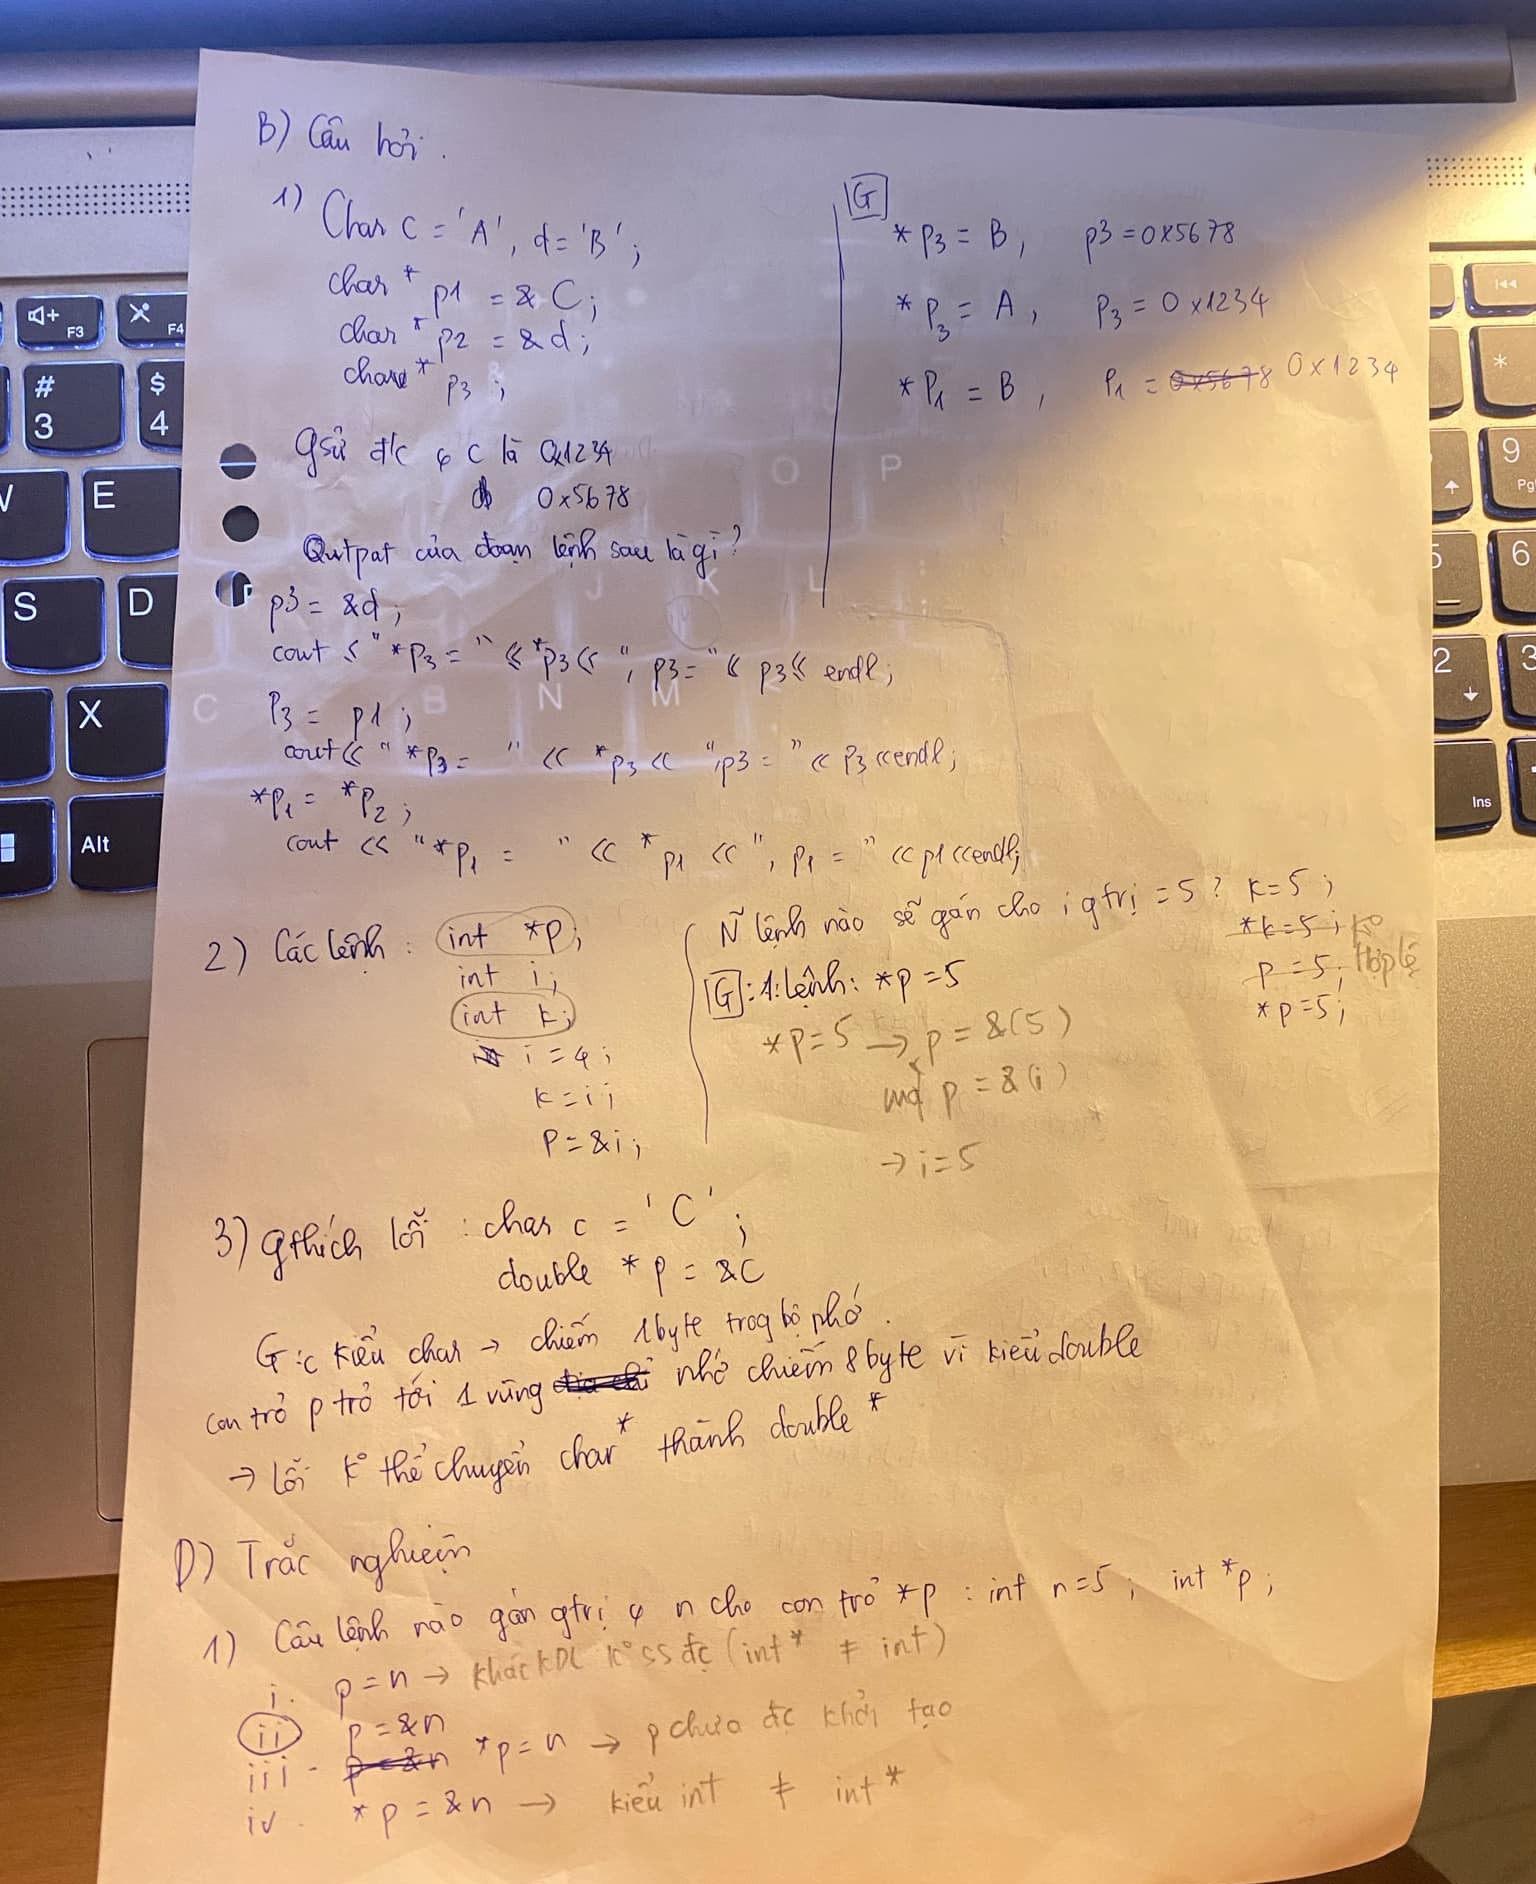 B) Câu hỏi.
1) Char c = 'A', d = 'B';
char * p1 = & C;
char * p2 = & d;
char * p3 ;
gsử đ/c ₫ C là 0x1234
d 0x5678
Output của đoạn lệnh sau là gì?
p3 = &d ;
cout < " *p3 = " << *p3 << ", p3 = " << p3 << endl ;
P3 = p1 ;
cout << " *p3 = " << *p3 << ", p3 = " << P3 << endl ;
*p1 = *P2 ;
cout << " *P1 = " << *p1 << ", P1 = " << p1 << endl;
G
*P3 = B, p3 = 0x5678
*P3 = A, P3 = 0x1234
*P1 = B, P1 = 0x5678 0x1234
2) Các lệnh : int *p;
int i;
int k;
i = 4 ;
k = i ;
P = &i ;
N~ lệnh nào sẽ gán cho i gtrị = 5 ? K=5 ;
*k=5 ; K°
p = 5; Hợp lệ
*p=5;
G : 1 : lệnh : *p = 5
*p=5 → p = &(5)
mà p = &(i)
→ i=5
3) gthích lỗi : char c = 'C' ;
double * p = &C
G : c kiểu char → chiếm 1byte trog bộ nhớ .
con trỏ p trỏ tới 1 vùng địa chỉ nhớ chiếm 8byte vì kiểu double
→ Lỗi K° thể chuyển char* thành double *
D) Trắc nghiệm
1) Câu lệnh nào gán gtrị ₫ n cho con trỏ *p : int n=5 ; int *p ;
i. p = n → khác KDL K° SS đc (int* ≠ int)
ii p = &n
iii - p = &n *p = n → p chưa đc khởi tạo
iv. *p = &n → kiểu int ≠ int *
F3
F4
#
3
$
4
E
S
D
X
Alt
C
B
N
M
J
K
L
O
P
*
9
5
6
2
3
Ins